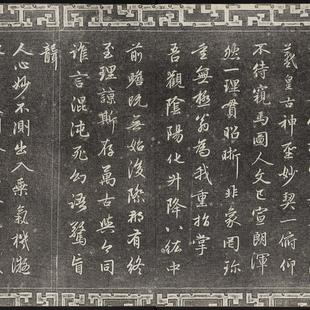 羲皇古神聖妙契一俯仰
不待窺馬圖人文已宣朗渾
然一理貫昭晰非象罔珍
重無極翁為我重指掌
吾觀陰陽化升降八紘中
前瞻既無始後際那有終
至理諒斯存萬古與今同
誰言混沌死幻語驚盲
聾
人心妙不測出入乘氣機凝